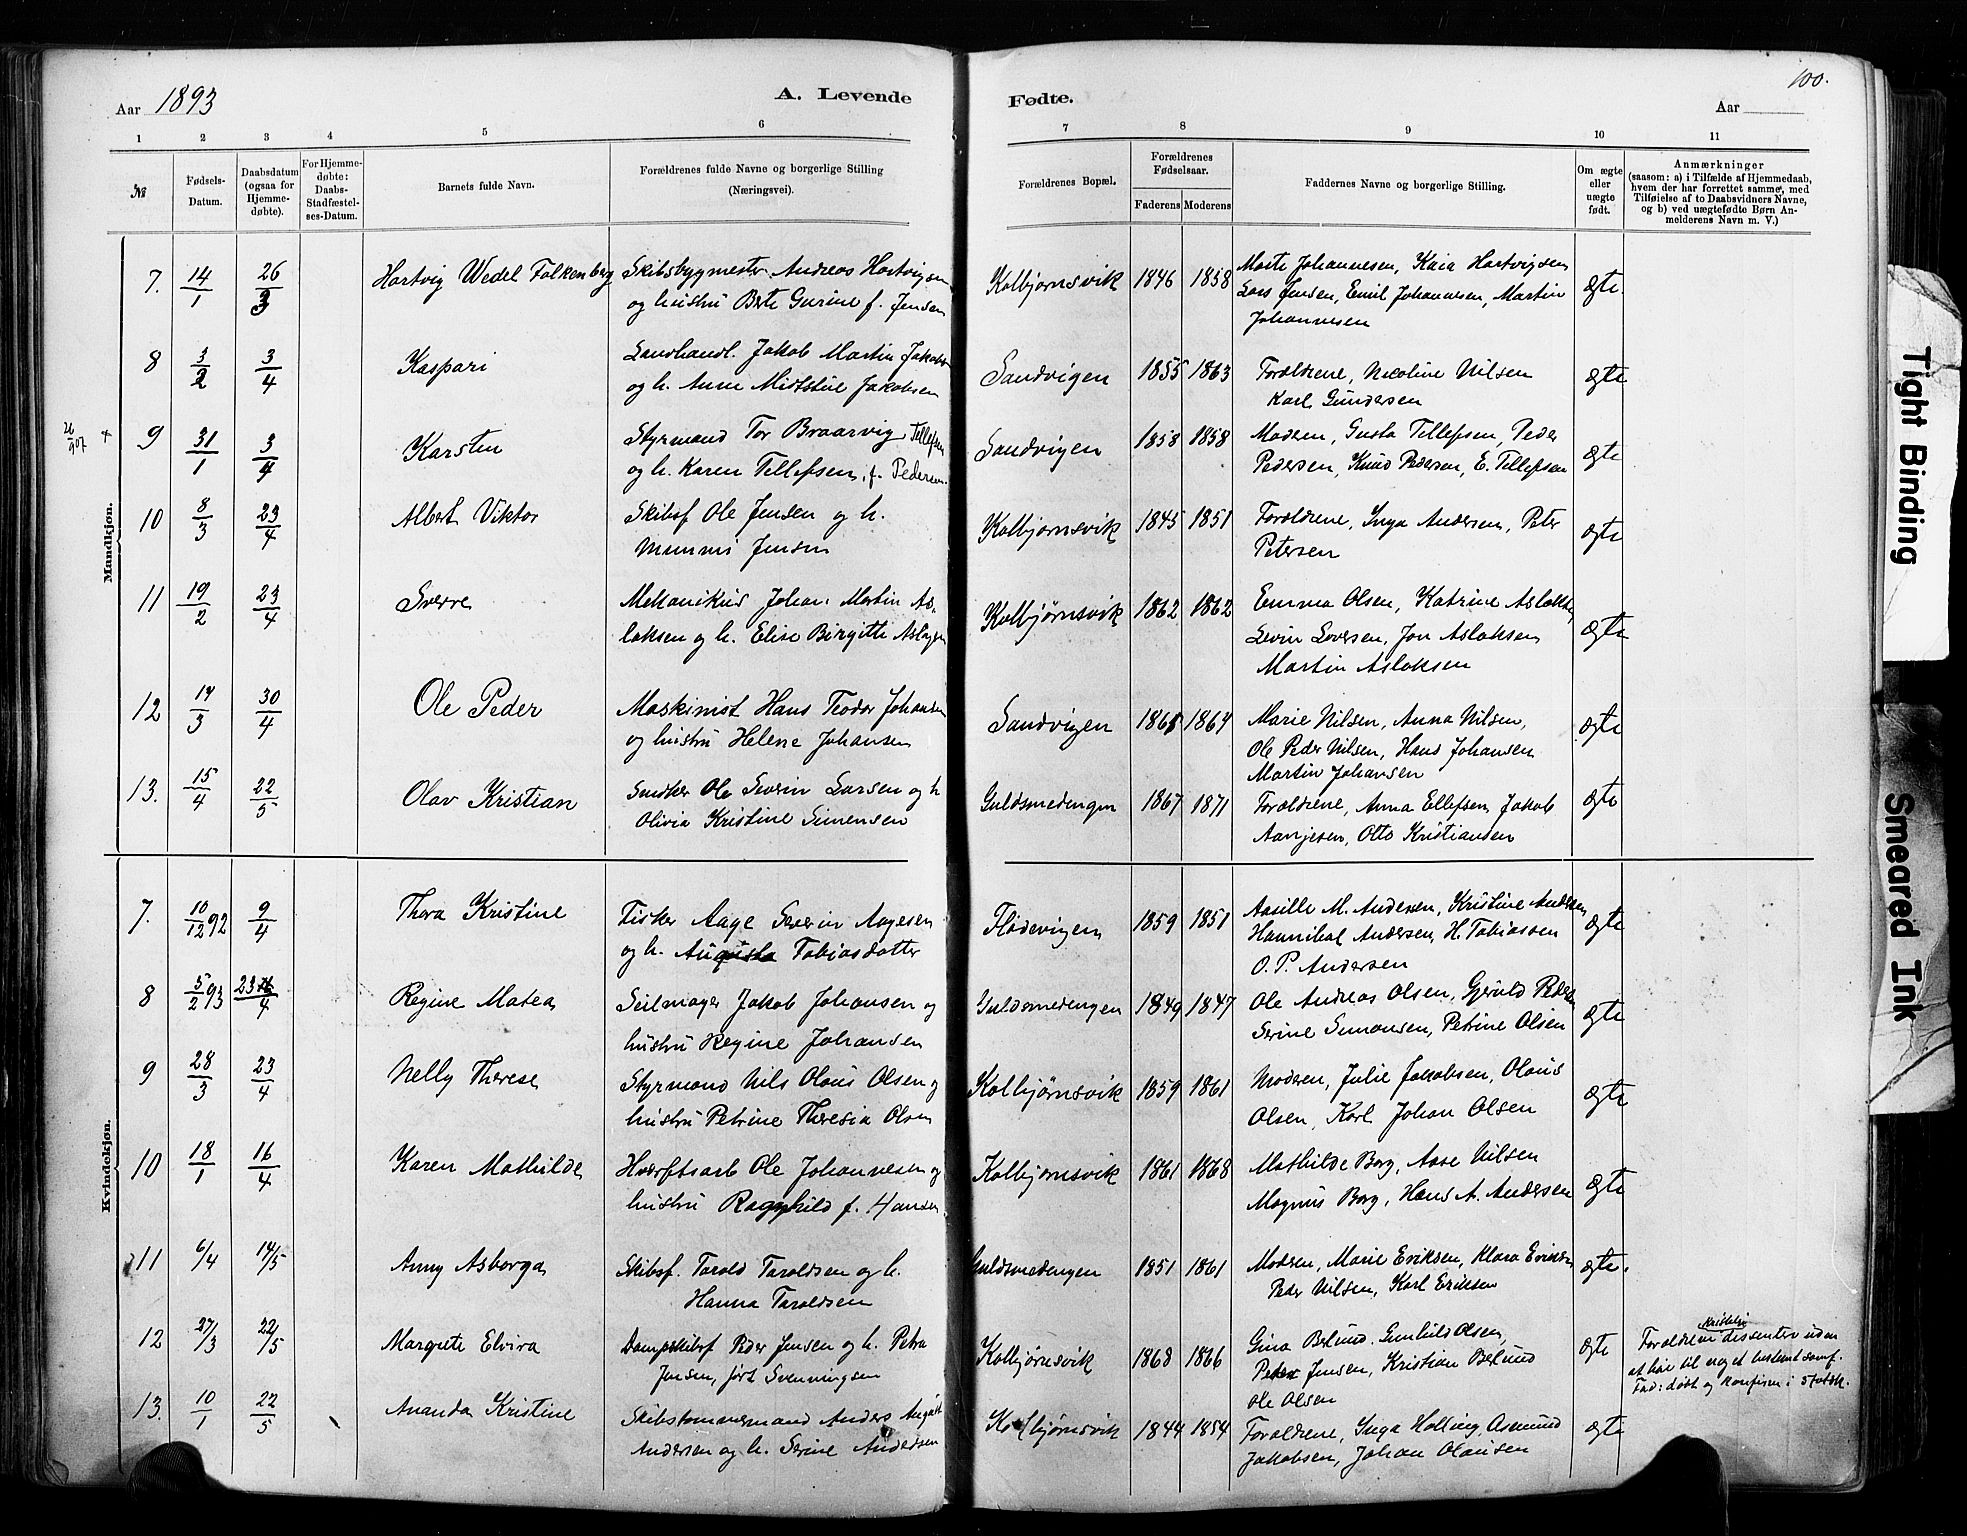 Aar 1893
A. Levende
Fødte.
100.
Aar
1 2 3 4 5 6 7 8 9 10 11
№
Fødsels-Datum.
Daabsdatum (ogsaa for Hjemme-døbte).
For Hjemme-døbte: Daabs-Stadfæstel-ses-Datum.
Barnets fulde Navn.
Forældrenes fulde Navne og borgerlige Stilling
(Næringsvei).
Forældrenes Bopæl.
Forældrenes Fødselsaar.
Faderens Moderens
Faddernes Navne og borgerlige Stilling.
Om ægte eller uægte født.
Anmærkninger
(saasom: a) i Tilfælde af Hjemmedaab,
hvem der har forrettet samme, med
Tilføielse af to Daabsvidners Navne,
og b) ved uægtefødte Børn An-
melderens Navn m. V.)
Mandkjøn.
7. 14/1 26/3 Hartvig Wedel Falkenberg Skibsbygmester Andreas Hartvigsen Kolbjørnsvik 1846 1858 Marte Johannesen, Kaia Hartvigsen ægte.
og hustru Berte Gurine f. Jensen Lars Jensen, Emil Johannesen, Martin
Johannesen
8 3/2 3/4 Kaspari Landhandl. Jakob Martin Jakobs Sandvigen 1855 1863 Forældrene, Nicoline Nilsen ægte
og h. Anne Jakobsen Karl Gundersen
9 31/1 3/4 Karsten Styrmand Tor Braarvig Tellefsen Sandvigen 1858 1858 Moderen, Gusta Tellefsen, Peder ægte
og h. Karen Tellefsen, f. Pedersen. Pedersen, Knud Pedersen, E. Tellefsen
10 8/3 23/4 Albert Viktor Skibsf Ole Jensen og h. Kolbjørnsvik 1845 1851 Forældrene, Inga Andersen, Peter ægte
Jensen Petersen
11 19/2 23/4 Sverre Mekanikus Johan Martin As- Kolbjørnsvik 1862 1862 Emma Olsen, Katrine ægte
laksen og h. Elise Birgitte Jon Aslaksen
Martin Aslaksen
12 17/3 30/4 Ole Peder Maskinist Hans Teodor Johansen Sandvigen 1864 Marie Nilsen, Anna Nilsen, ægte
og hustru Helene Johansen Ole Peder Nilsen, Hans Johansen
Martin Johansen
13. 15/4 22/5 Olav Kristian Snedker Ole Severin Larsen og h Guldsmedengen 1867 1871 Forældrene, Anna Ellefsen, Jakob ægte
Olivia Kristine Simensen Aanjesen, Otto Kristiansen
Kvindekjøn.
7. 10/12 92 9/4 Thora Kristine Fisker Aage Severin Aagesen Flødevigen 1859 1851 Aasille M. Andersen, Kristine Andersen ægte
og h. Augusta Tobiasdatter Hannibal Andersen, H. Tobiassen
O. P. Andersen
8 5/2 93 23/4 Regine Matea Seilmager Jakob Johansen og Guldsmedengen 1849 1847 Ole Andreas Olsen, Gjeruld Peders ægte
hustru Regine Johansen Serine Simonsen, Petrine Olsen
9 28/3 23/4 Nelly Therese Styrmand Nils Olaus Olsen og Kolbjørnsvik 1859 1861 Moderen, Julie Jakobsen, Olaus ægte
hustru Petrine Theresia Olsen Olsen, Karl Johan Olsen
10 18/1 16/4 Karen Mathilde Hverftsarb Ole Johannesen og Kolbjørnsvik 1861 1868 Mathilde Borg, Aase Nilsen ægte
hustru Ragnhild f. Hansen Magnus Borg, Hans A. Andersen
11 6/4 14/5 Anny Asborga Skibsf. Tarald Taraldsen og h. Guldsmedengen 1851 1861 Moderen, Marie Eriksen, Klara Eriksen ægte.
Hanna Taraldsen Peder Nilsen, Karl Eriksen
12 27/3 22/5 Margrete Elvira Dampskibsf Peder Jensen og h. Petra Kolbjørnsvik 1868 1866 Gina Belund, Gunhild Olsen, ægte
Jensen, født Svenningsen Peter Jensen, Kristian Belund
Ole Olsen
Forældrene dissenter uden
at høre til noget bestemt samf.
13. 10/1 22/5 Ananda Kristine Skibstømmermand Anders August Kolbjørnsvik 1844 1854 Forældrene, Inga Asmund ægte
Andersen og h. Serine Andersen Jakobsen, Johan Olausen
Tight Binding
Smeared Ink